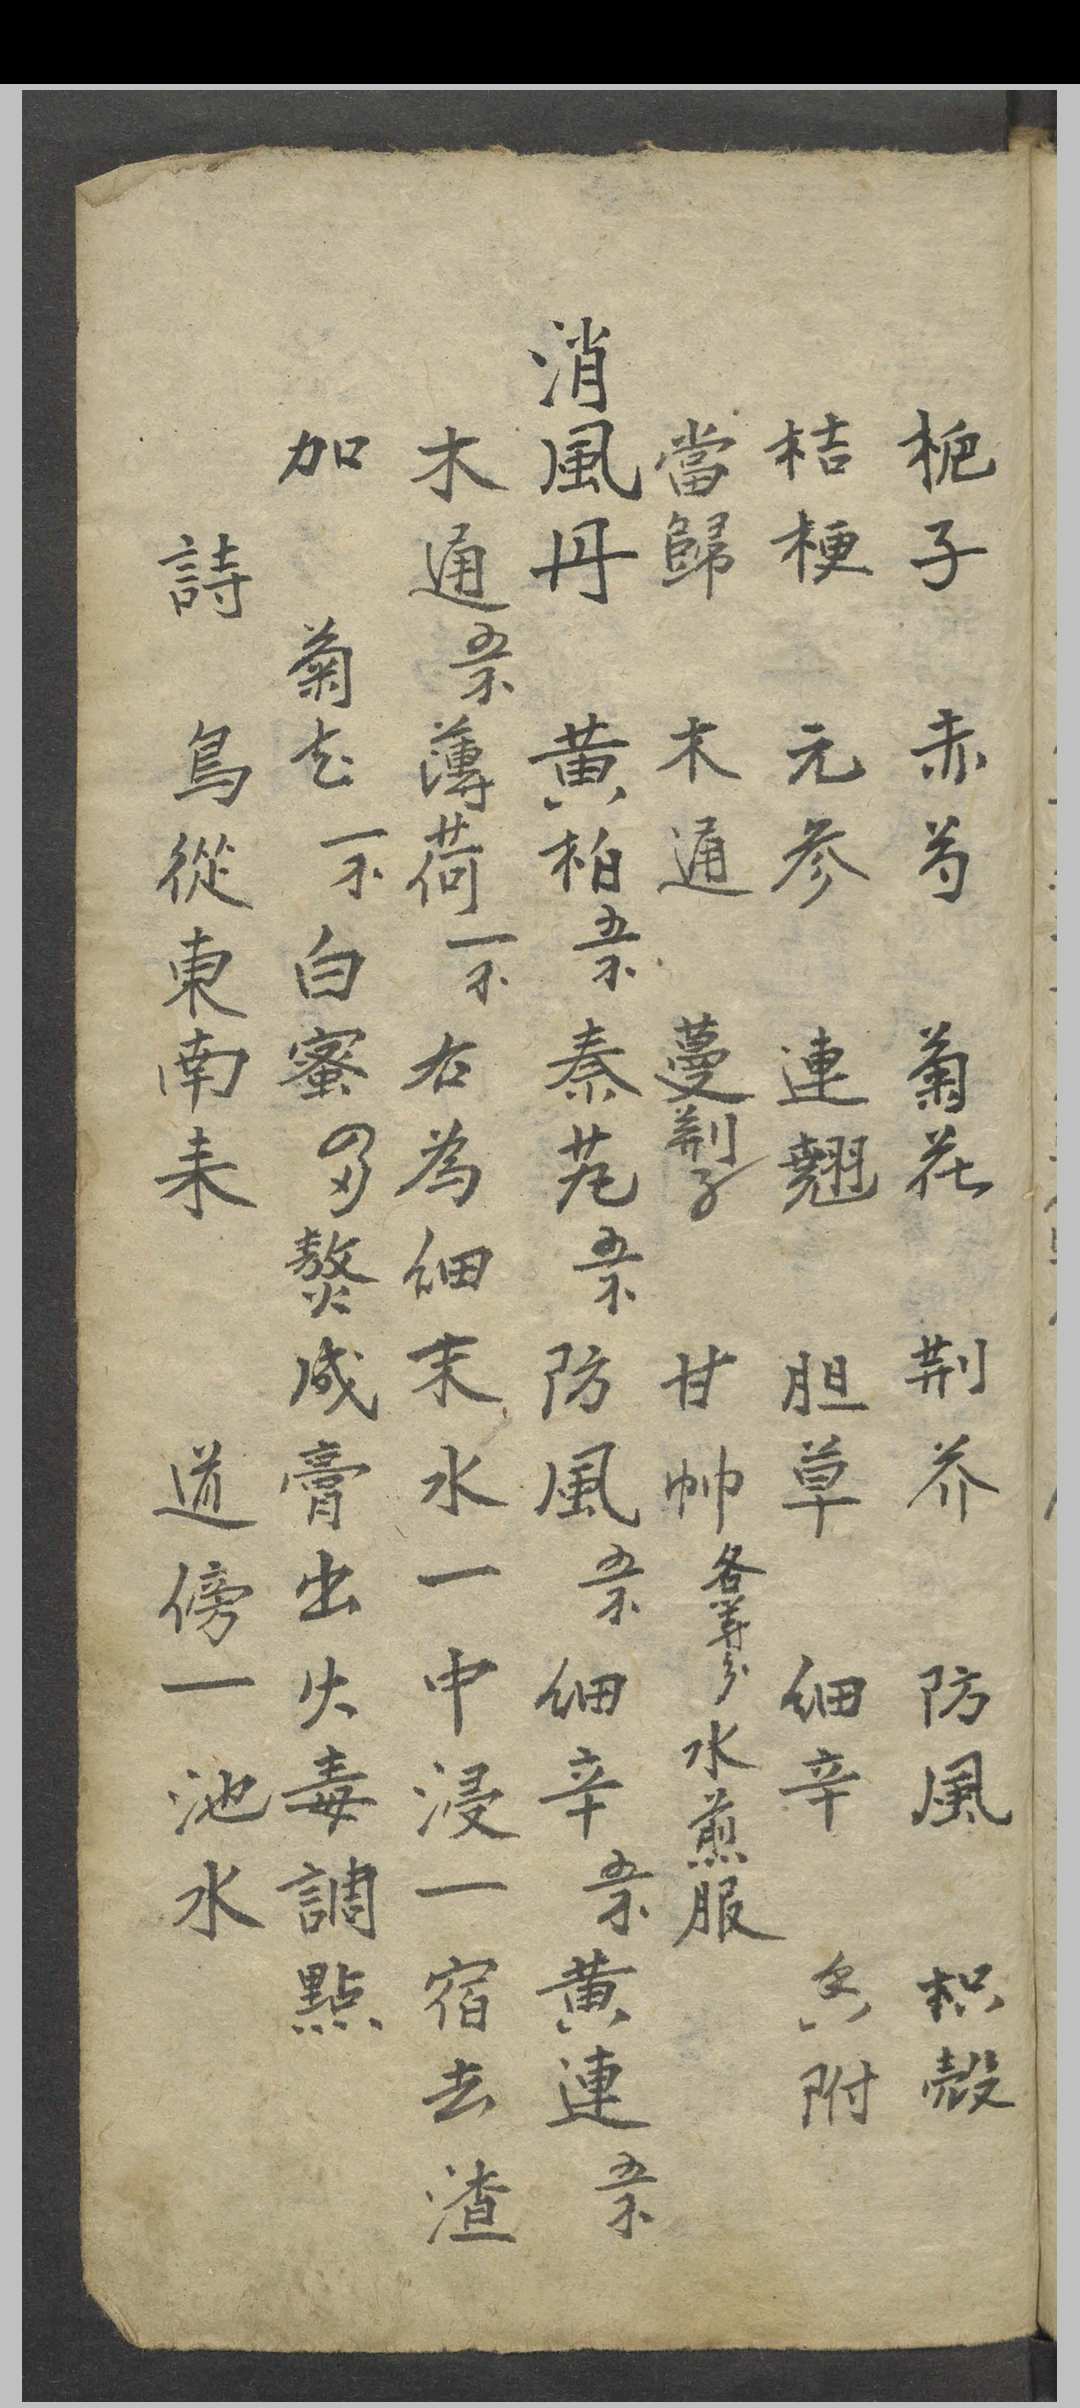 梔子 赤芍 菊花 荆芥 防風 枳殼
桔梗 元参 連翹 胆草 細辛 香附
當歸 木通 蔓荆子 甘艸 各等分 水煎服
消風丹 黄柏 秦艽 防風 細辛 黄連
木通 薄荷 右為細末水一中浸一宿去渣
加 菊花 白蜜 熬成膏出火毒調點
詩 鳥從東南来 道傍一池水